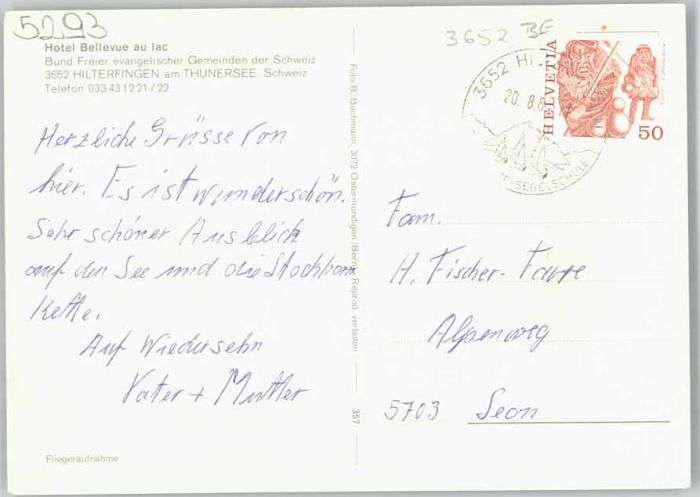 5293
Hotel Bellevue au lac
Bund Freier evangelischer Gemeinden der Schweiz
3652 HILTERFINGEN am THUNERSEE, Schweiz
Telefon 033 43 12 21 / 22
Herzliche Grüsse von
hier. Es ist wunderschön.
Sehr schöner Ausblick
auf den See und die Stockhorn
Kette.
Auf Wiedersehn
Vater + Mutter
Fliegeraufnahme
Foto B. Bachmann, 3072 Ostermundigen (Bern) Reprod. verboten
357
3652 BE
3652 HI
20. 8. 8
SEGELSCHULE
HELVETIA
50
Fam.
H. Fischer-Favre
Alpenweg
5703 Seon